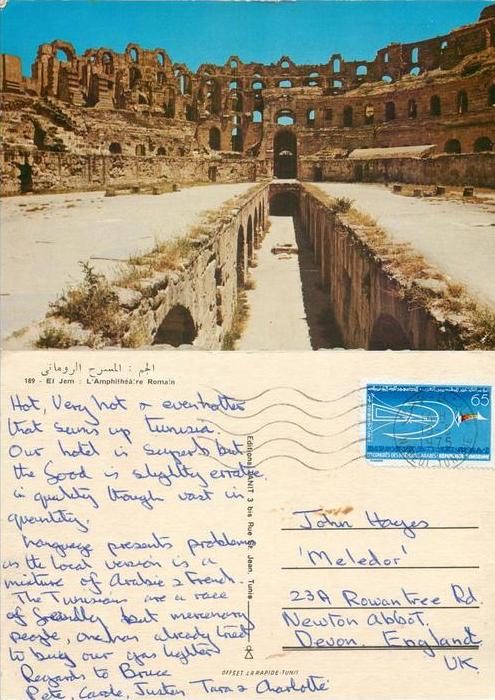 الجم : المسرح الروماني
189 - El Jem : L'Amphithéâtre Romain
Hot, Very hot & even hotter
that sums up Tunisia.
Our hotel is superb but
the food is slightly erratic
in quality though vast in
quantity.
Language presents problems
as the local version is a
mixture of Arabic & French.
The Tunisian are a race
of friendly but mercenary
people, one has already tried
to buy our gas lighter
Regards to Bruce
Pete, Carole, Justen Tara & Charlotte
3 bis Rue St. Jean, Tunis
65
John Hayes
'Meledor'
23A Rowantree Rd.
Newton Abbot.
Devon. England
UK
OFFSET LA RAPIDE - TUNIS